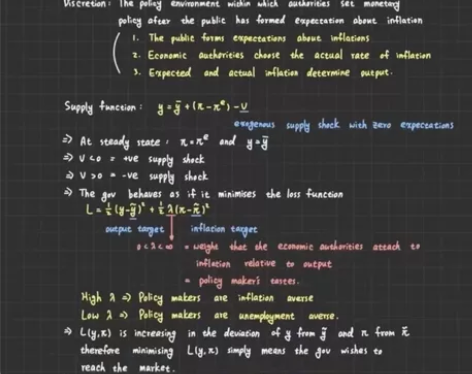 Discretion: The policy environment within which authorities set monetary
policy after the public has formed expectation about inflation
1. The public forms expectations about inflations
2. Economic authorities choose the actual rate of inflation
3. Expected and actual inflation determine output.
Supply function: y = ȳ + (π - πᵉ) - U
exogenous supply shock with zero expectations
⇒ At steady state: π = πᵉ and y = ȳ
⇒ U < 0 = +ve supply shock
⇒ U > 0 = -ve supply shock
⇒ The gov behaves as if it minimises the loss function
L = ½ (y - ỹ)² + ½ λ(π - π̃)²
output target inflation target
0 < λ < ∞ = weight that the economic authorities attach to
inflation relative to output
= policy maker's tastes.
High λ ⇒ Policy makers are inflation averse
Low λ ⇒ Policy makers are unemployment averse.
⇒ L(y,π) is increasing in the deviation of y from ỹ and π from π̃
therefore minimising L(y,π) simply means the gov wishes to
reach the market.